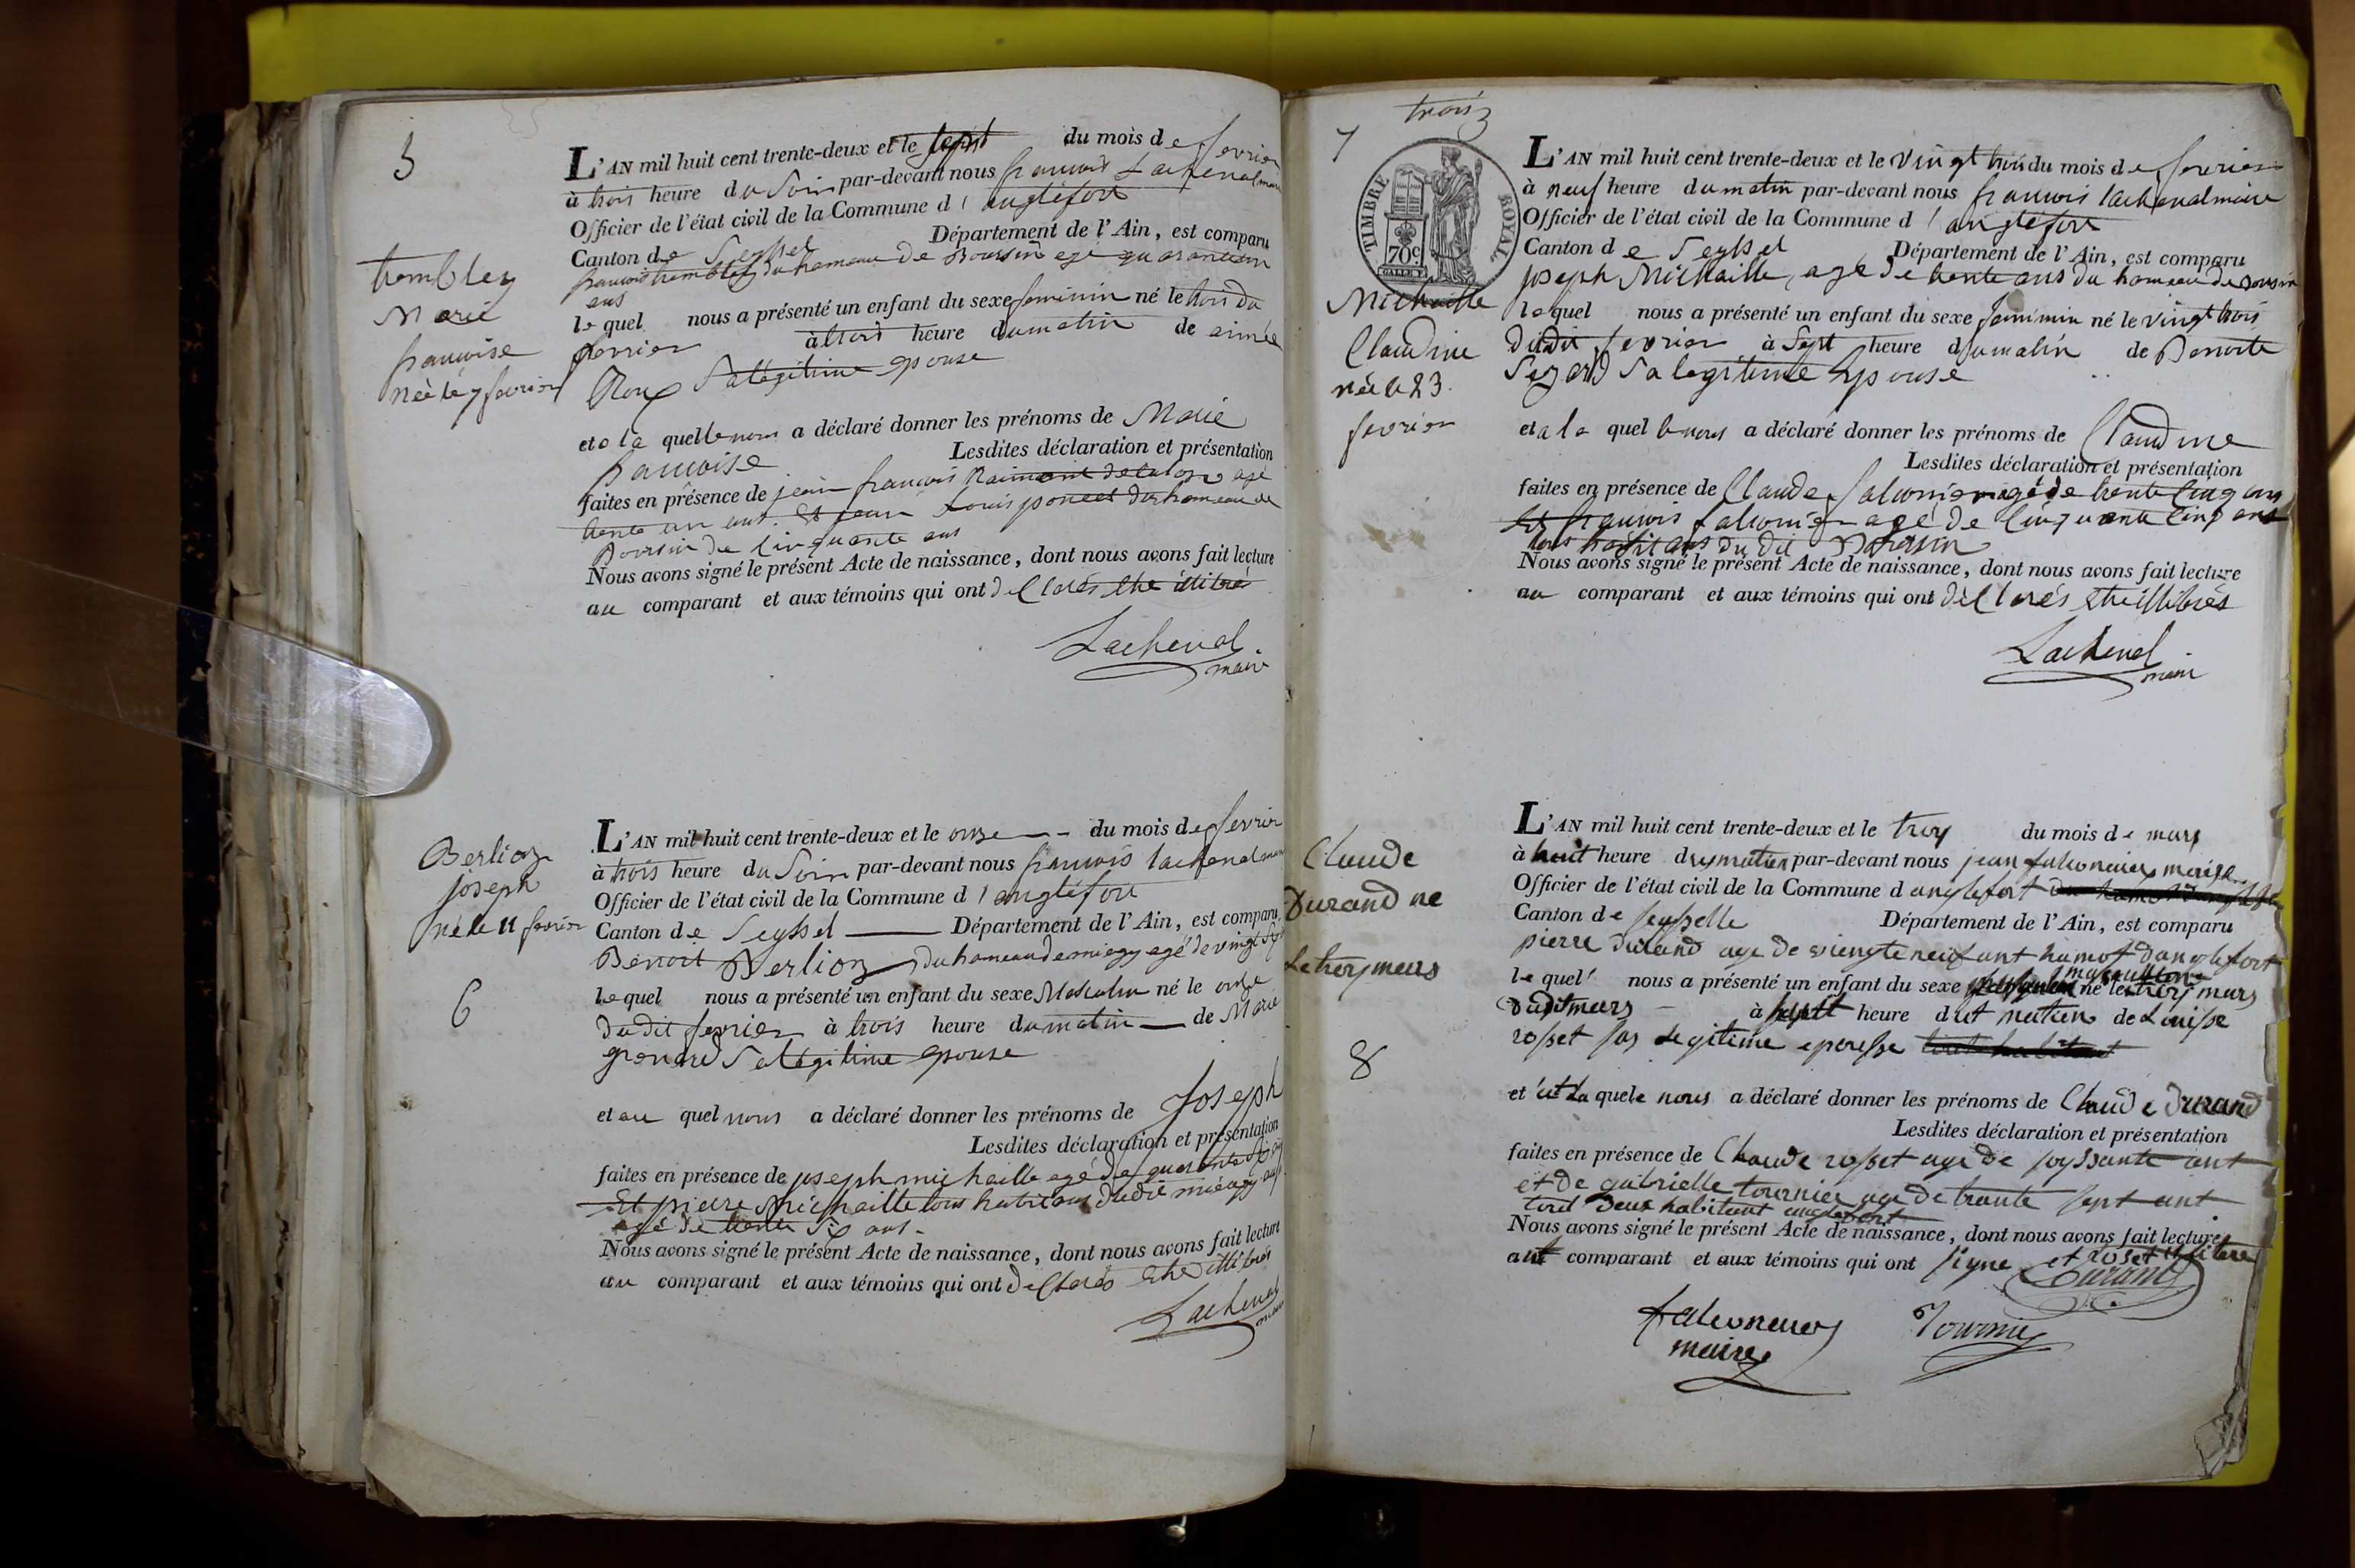 5
L'AN mil huit cent trente-deux et le sept du mois de fevrier
à trois heure du Soir par-devant nous francois Lachenal maire
Officier de l'état civil de la Commune d'anglefort
Canton de Seyssel Département de l'Ain, est comparu
francois trembley du hameau de Boursin agé quarante un
ans
lequel nous a présenté un enfant du sexe feminin né le trois du
fevrier à trois heure du matin de aimée
Roux Sa légitime epouse
et a la quelle nous a déclaré donner les prénoms de Marie
francoise Lesdites déclaration et présentation
faites en présence de jean francois agé
trente un ans. Et jean Louis poncet du hameau de
Boursin de cinquante ans
Nous avons signé le présent Acte de naissance, dont nous avons fait lecture
au comparant et aux témoins qui ont declarés etre illitrés
Lachenal
maire
trembley
Marie
francoise
née le 7 fevrier
Berlioz
joseph
né le 11 fevrier
6
L'AN mil huit cent trente-deux et le onze du mois de fevrier
à trois heure du Soir par-devant nous francois lachenal maire
Officier de l'état civil de la Commune d'anglefort
Canton de Seyssel Département de l'Ain, est comparu
Benoit Berlioz du hameau de miegy agé de vingt Sept
lequel nous a présenté un enfant du sexe Masculin né le onze
dudit fevrier à trois heure du matin de Marie
grenard Sa légitime epouse
et au quel nous a déclaré donner les prénoms de Joseph
Lesdites déclaration et présentation
faites en présence de joseph michaille agé de quarante
Et pierre Michaille tous habitans dudit miegy
agé de trente Six ans.
Nous avons signé le présent Acte de naissance, dont nous avons fait lecture
au comparant et aux témoins qui ont declarés etre illitrés
Lachenal
maire
trois
7
TIMBRE ROYAL
70c
L'AN mil huit cent trente-deux et le vingt trois du mois de fevrier
à neuf heure du matin par-devant nous francois lachenal maire
Officier de l'état civil de la Commune d'anglefort
Canton de Seyssel Département de l'Ain, est comparu
joseph Michaille, agé de trente ans du hameau de Boursin
lequel nous a présenté un enfant du sexe feminin né le vingt trois
dudit fevrier à Sept heure du matin de Benoite
Seyard Sa legitime epouse
et a la quelle nous a déclaré donner les prénoms de Claudine
Lesdites déclaration et présentation
faites en présence de Claude falconier agé de trente cinq ans
Et francois falconier agé de cinquante cinq ans
tous habitans du dit Boursin
Nous avons signé le présent Acte de naissance, dont nous avons fait lecture
au comparant et aux témoins qui ont déclarés etre illitrés
Lachenal
maire
Michaille
Claudine
née le 23.
fevrier
Claude
Durand ne
Le troy mars
8
L'AN mil huit cent trente-deux et le troy du mois de mars
à huit heure du matien par-devant nous jean falconnier maire
Officier de l'état civil de la Commune d anglefort
Canton de seysselle Département de l'Ain, est comparu
pierre durand age de viengte neuf ant hamot danglefort
lequel nous a présenté un enfant du sexe masculien né le troy mars
dudit mars à sept heure dut matien de Louisse
rosset sas legitime epousse
et ut la quele nous a déclaré donner les prénoms de Claude durand
Lesdites déclaration et présentation
faites en présence de Claude rosset age de soyssante ant
et de gabrielle tournier age de trante sept ant
tout deux habitant anglefort
Nous avons signé le présent Acte de naissance, dont nous avons fait lecture
aut comparant et aux témoins qui ont signe et roset
Durand
falconnier
maire
Tournier